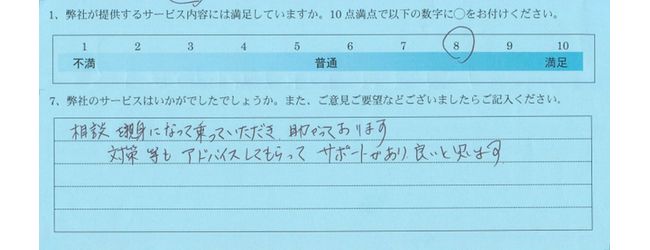 1、弊社が提供するサービス内容には満足していますか。10点満点で以下の数字に○をお付けください。
1 2 3 4 5 6 7 8 9 10
不満 普通 満足
7、弊社のサービスはいかがでしたでしょうか。また、ご意見ご要望などございましたらご記入ください。
相談 親身になって乗っていただき 助かっております
対策等も アドバイスしてもらって サポートがあり 良いと思います